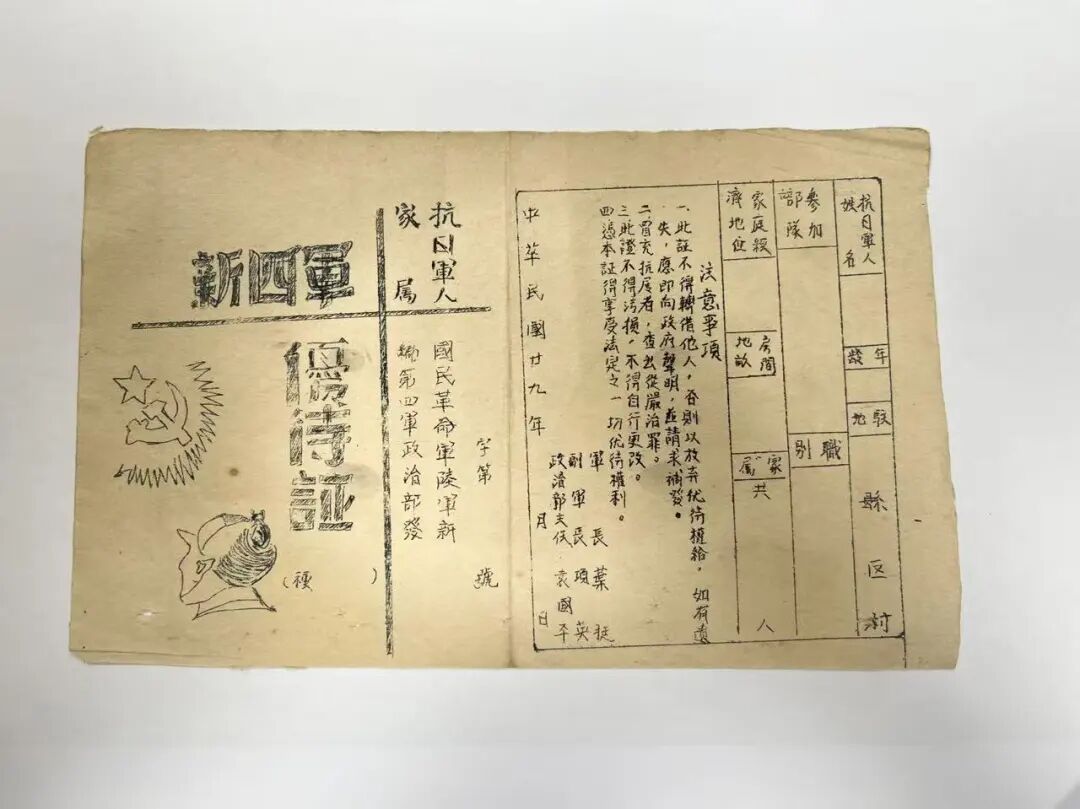 抗日軍人
家属
新四軍
優待証
國民革命軍陸軍新
編第四軍政治部發
字第 號
(種 )
抗日軍人
姓名
年
駐地
縣 区 村
參加
部隊
職
别
家庭经
濟地位
房間
地畝
家
屬
共 人
注意事項
一、此証不得轉借他人，否則以放弃优待權給。如有遺
失，應即向政府聲明，並請求補發。
二、冒充抗属者，查出從嚴治罪。
三、此證不得污損，不得自行更改。
四、憑本証得享受法定之一切优待權利。
軍長 葉挺
副軍長 項英
政治部主任 袁國平
中華民國廿九年 月 日